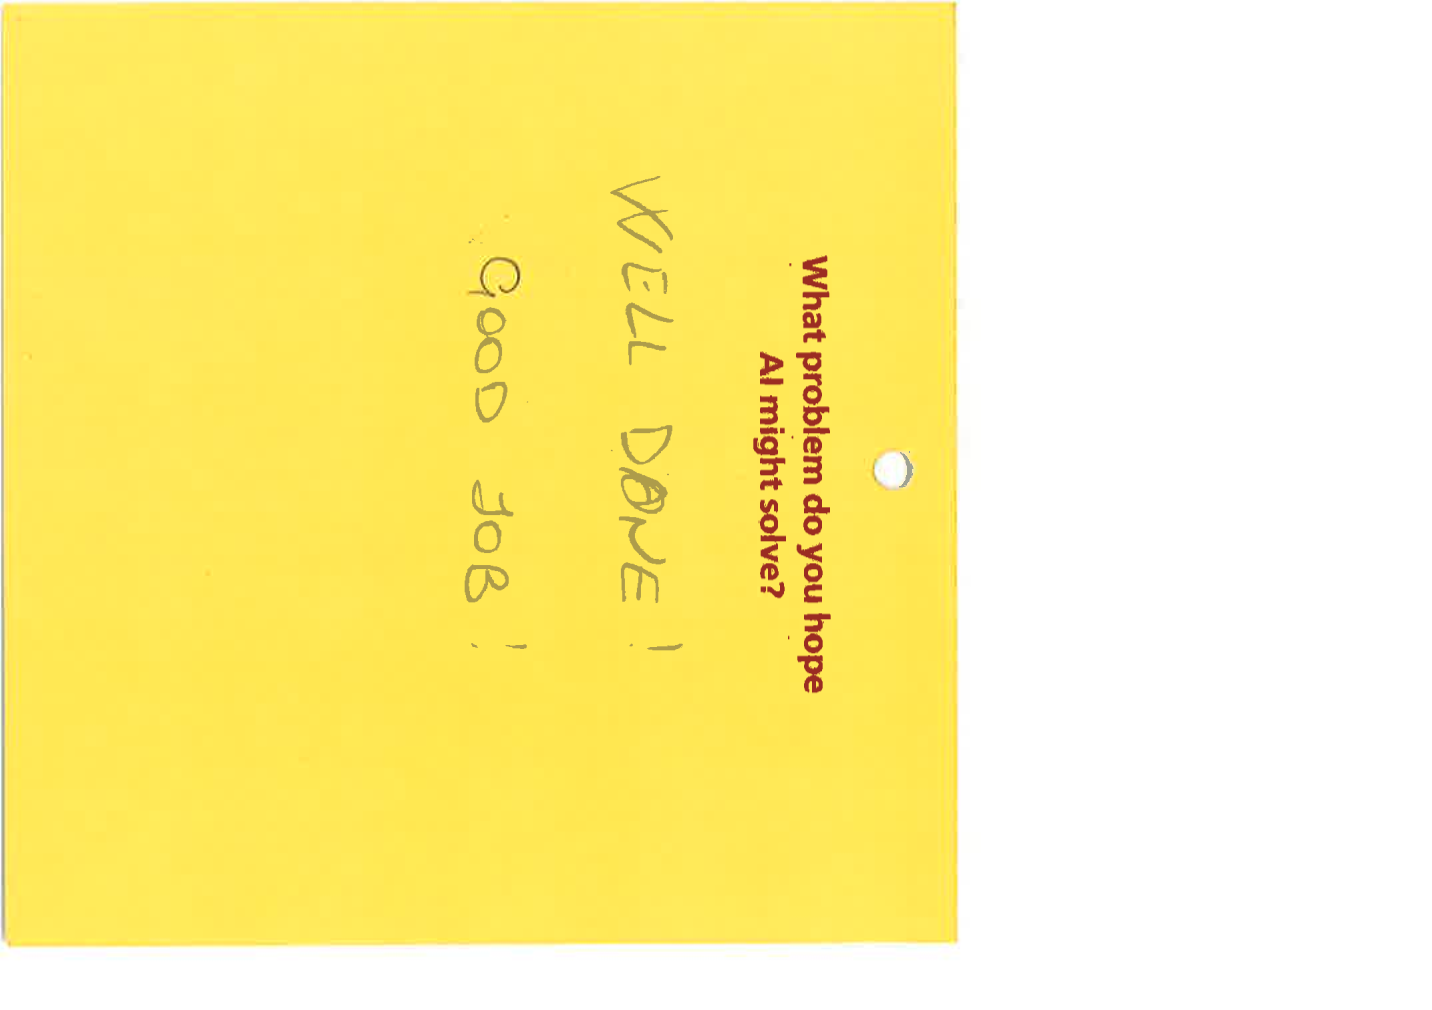 What problem do you hope
AI might solve?
WELL DONE !
GOOD JOB !